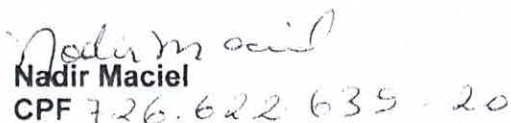 Nadir Maciel
Nadir Maciel
CPF 726.622.639-20